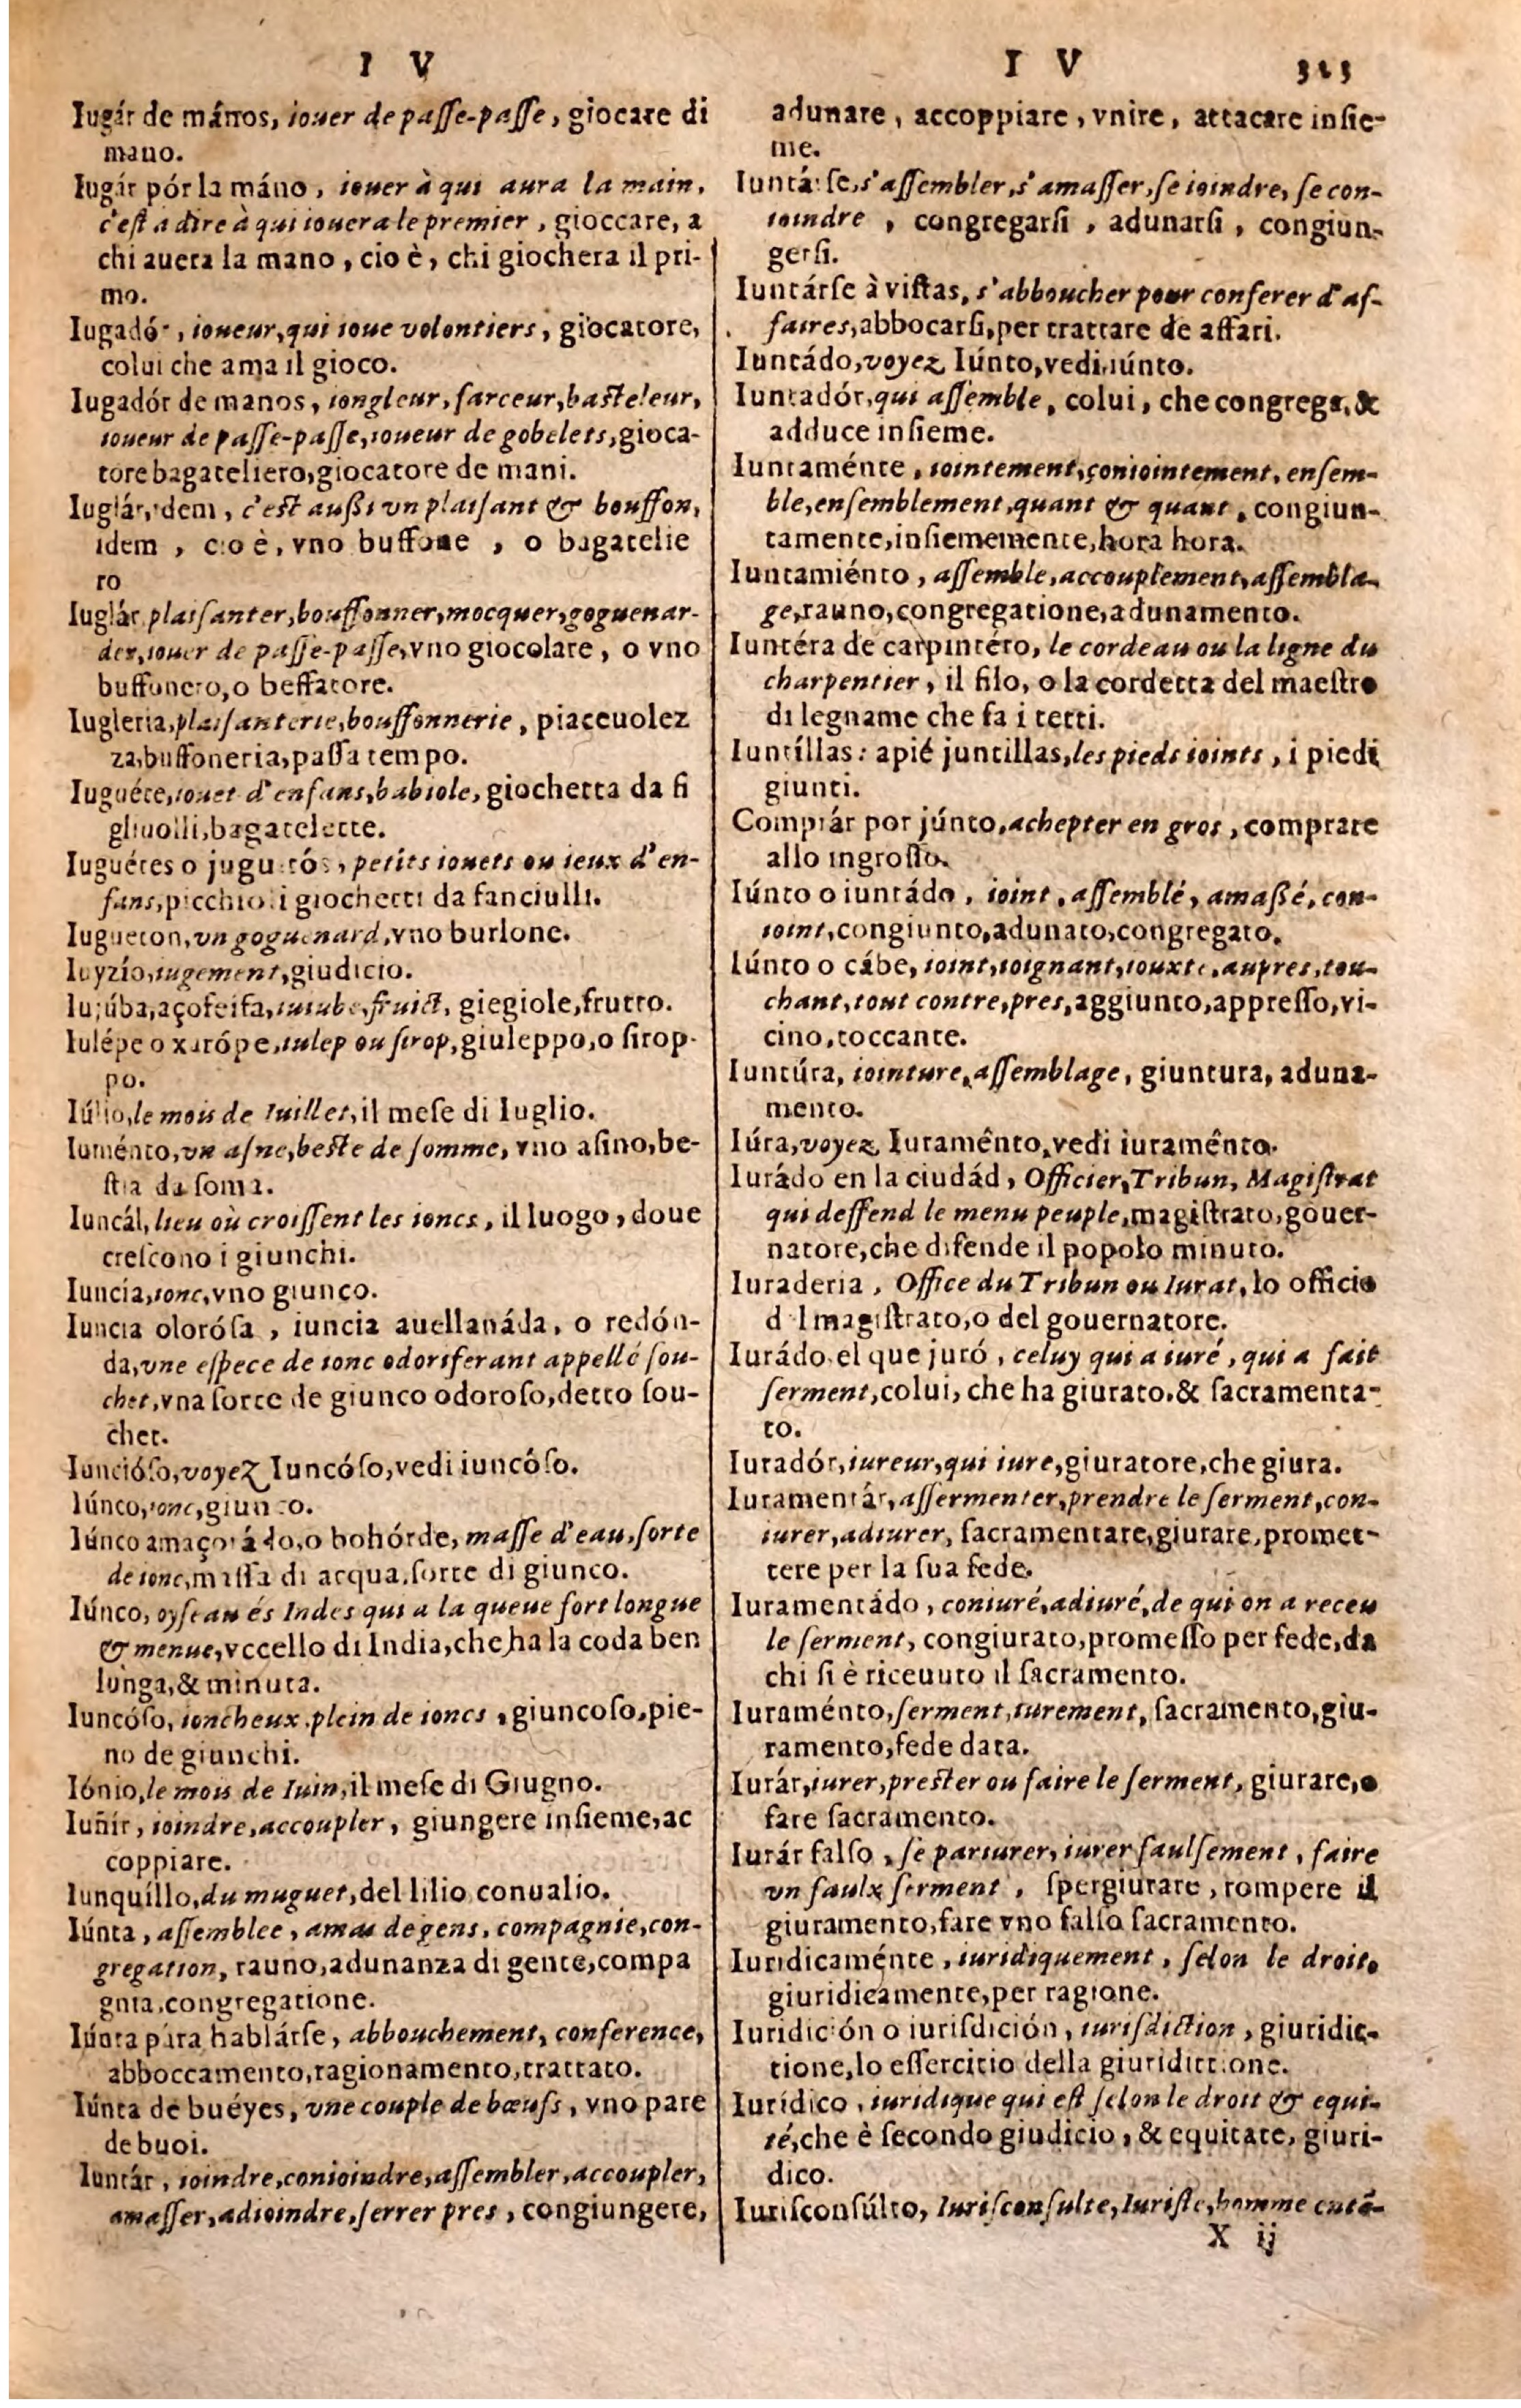 I V
Iugár de mános, iouer de paſſe-paſſe, giocare di
mano.
Iugár pór la máno, iouer à qui aura la main,
c'eſt a dire à qui iouera le premier, gioccare, a
chi auera la mano, cio è, chi giochera il pri-
mo.
Iugadór, ioueur, qui ioue volontiers, giocatore,
colui che ama il gioco.
Iugadór de manos, iongleur, farceur, baſteleur,
ioueur de paſſe-paſſe, ioueur de gobelets, gioca-
tore bagateliero, giocatore de mani.
Iuglár, idem, c'eſt außi vn plaiſant & bouffon,
idem, cio è, vno buffone, o bagatelie
ro
Iuglár plaiſanter, bouffonner, mocquer, goguenar-
der, iouer de paſſe-paſſe, vno giocolare, o vno
buffonero, o beffatore.
Iugleria, plaiſanterie, bouffonnerie, piaceuolez
za, buffoneria, paſſa tempo.
Iuguéte, iouet d'enfans, babiole, giochetta da fi
gliuolli, bagatelette.
Iuguétes o juguitós, petits iouets ou ieux d'en-
fans, picchioli giochetti da fanciulli.
Iugueton, vn goguenard, vno burlone.
Iuyzío, iugement, giudicio.
Iujúba, açofeifa, iuiube, fruict, giegiole, frutto.
Iulépe o xarópe, iulep ou ſirop, giuleppo, o ſirop-
po.
Iúlio, le mois de Iuillet, il meſe di Iuglio.
Iuménto, vn aſne, beſte de ſomme, vno aſino, be-
ſtia da ſoma.
Iuncál, lieu où croiſſent les ioncs, il luogo, doue
creſcono i giunchi.
Iuncía, ionc, vno giunco.
Iuncia oloróſa, iuncia auellanáda, o redón-
da, vne eſpece de ionc odoriferant appellé ſou-
chet, vna ſorte de giunco odoroſo, detto ſou-
chet.
Iuncióſo, voyez Iuncóſo, vedi iuncôſo.
Iúnco, ionc, giunco.
Iúnco amaçorádo, o bohórde, maſſe d'eau, ſorte
de ionc, maſſa di acqua, ſorte di giunco.
Iúnco, oyſeau és Indes qui a la queue fort longue
& menue, vccello di India, che ha la coda ben
lunga, & minuta.
Iuncóſo, ioncheux, plein de ioncs, giuncoſo, pie-
no de giunchi.
Iónio, le mois de Iuin, il meſe di Giugno.
Iuñír, ioindre, accoupler, giungere inſieme, ac
coppiare.
Iunquíllo, du muguet, del lilio conualio.
Iúnta, aſſemblee, amas de gens, compagnie, con-
gregation, rauno, adunanza di gente, compa
gnia, congregatione.
Iúnta pára hablárſe, abbouchement, conference,
abboccamento, ragionamento, trattato.
Iúnta de buéyes, vne couple de bœufs, vno pare
de buoi.
Iuntár, ioindre, conioindre, aſſembler, accoupler,
amaſſer, adioindre, ſerrer pres, congiungere,
I V 323
adunare, accoppiare, vnire, attacare inſie-
me.
Iuntárſe, s'aſſembler, s'amaſſer, ſe ioindre, ſe con-
ioindre, congregarſi, adunarſi, congiun-
gerſi.
Iuntárſe à viſtas, s'abboucher pour conferer d'af-
faires, abbocarſi, per trattare de affari.
Iuntádo, voyez Iúnto, vedi iúnto.
Iuntadór, qui aſſemble, colui, che congrega, &
adduce inſieme.
Iuntaménte, iointement, coniointement, enſem-
ble, enſemblement, quant & quant, congiun-
tamente, inſiememente, hora hora.
Iuntamiénto, aſſemble, accouplement, aſſembla-
ge, rauno, congregatione, adunamento.
Iuntéra de carpintéro, le cordeau ou la ligne du
charpentier, il filo, o la cordetta del maeſtro
di legname che fa i tetti.
Iuntíllas: a pié juntillas, les pieds ioints, i piedi
giunti.
Comprár por júnto, achepter en gros, comprare
allo ingroſſo.
Iúnto o iuntádo, ioint, aſſemblé, amaßé, con-
ioint, congiunto, adunato, congregato.
Iúnto o cábe, ioint, ioignant, iouxte, aupres, tou-
chant, tout contre, pres, aggiunto, appreſſo, vi-
cino, toccante.
Iuntúra, iointure, aſſemblage, giuntura, aduna-
mento.
Iúra, voyez Iuramênto, vedi iuramênto.
Iurádo en la ciudád, Officier, Tribun, Magiſtrat
qui deffend le menu peuple, magiſtrato, gouer-
natore, che difende il popolo minuto.
Iuraderia, Office du Tribun ou Iurat, lo officio
d l magiſtrato, o del gouernatore.
Iurádo el que juró, celuy qui a iuré, qui a fait
ſerment, colui, che ha giurato, & ſacramenta-
to.
Iuradór, iureur, qui iure, giuratore, che giura.
Iuramentár, aſſermenter, prendre le ſerment, con-
iurer, adiurer, ſacramentare, giurare, promet-
tere per la ſua fede.
Iuramentádo, coniuré, adiuré, de qui on a receu
le ſerment, congiurato, promeſſo per fede, da
chi ſi è riceuuto il ſacramento.
Iuraménto, ſerment, iurement, ſacramento, giu-
ramento, fede data.
Iurár, iurer, preſter ou faire le ſerment, giurare, o
fare ſacramento.
Iurár falſo, ſe pariurer, iurer faulſement, faire
vn faulx ſerment, ſpergiurare, rompere il
giuramento, fare vno falſo ſacramento.
Iuridicaménte, iuridiquement, ſelon le droit,
giuridicamente, per ragione.
Iuridición o iuriſdición, iuriſdiction, giuridic-
tione, lo eſſercitio della giuridittione.
Iurídico, iuridique qui eſt ſelon le droit & equi-
té, che è ſecondo giudicio, & equitate, giuri-
dico.
Iuriſconſúlto, Iuriſconſulte, Iuriſte, homme entē-
X ij